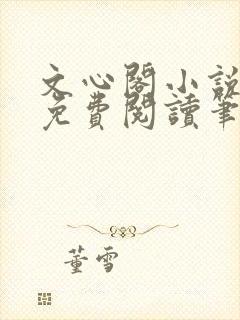 文心閣小說
免費閱讀筆
董雪